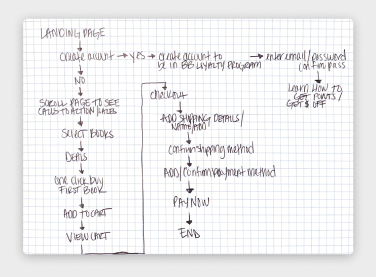 LANDING PAGE
create account → yes → create account to
be in BB LOYALTY PROGRAM
→ enter email/password
confirm pass
Learn HOW TO
GET POINTS/
GET $ OFF
NO
SCROLL PAGE TO SEE
CALLS TO ACTION/SALES
SELECT BOOKS
DEALS
one click buy
FIRST BOOK
ADD TO CART
VIEW CART
checkout
ADD SHIPPING DETAILS/
NAME/ADD
confirm shipping method
ADD/confirm payment method
PAY NOW
END